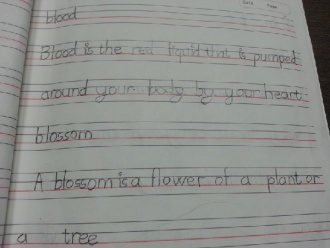 blood
Blood is the red liquid that is pumped
around your body by your heart
blossom
A blossom is a flower of a plant or
a tree